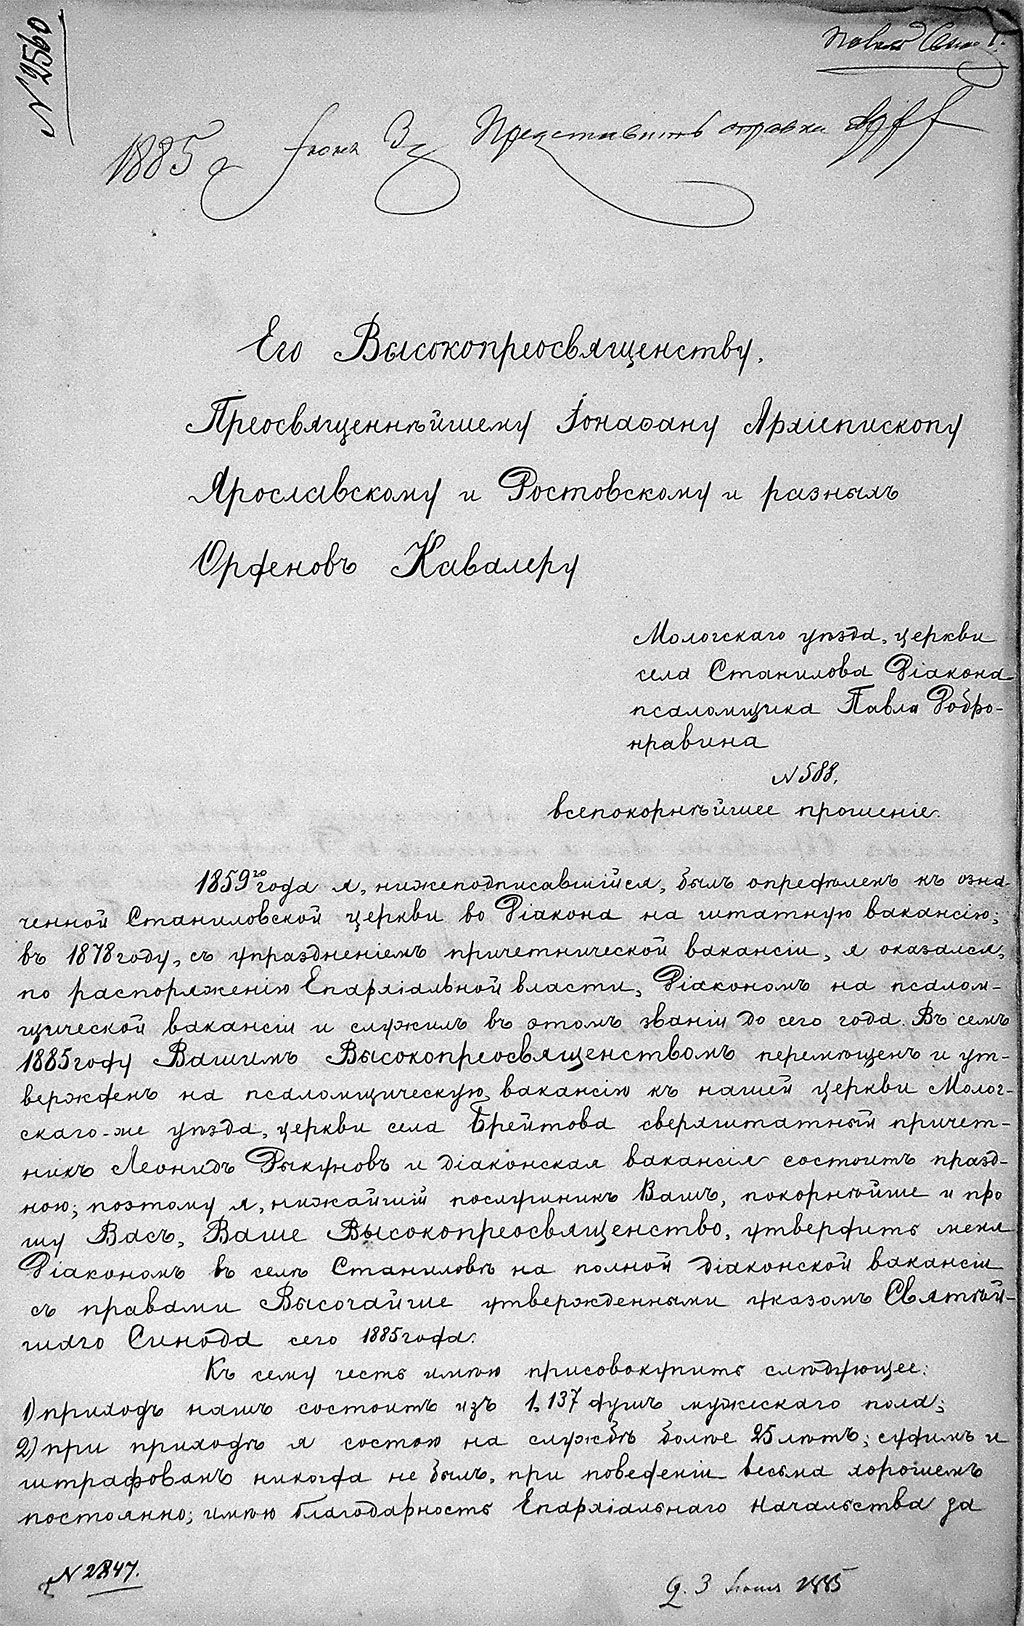 N 2560
1885 г июня 3 Представить справки
Его Высокопреосвященству,
Преосвященнѣйшему Іонаѳану Архіепископу
Ярославскому и Ростовскому и разныхъ
Орденовъ Кавалеру
Мологскаго уѣзда, церкви
села Станилова Діакона
псаломщика Павла Добро-
нравина
N 588.
всепокорнѣйшее прошеніе.
1859го года я, нижеподписавшійся, былъ опредѣленъ къ озна-
ченной Станиловской церкви во Діакона на штатную вакансію;
въ 1878 году, съ упраздненіемъ причетнической вакансіи, я оказался,
по распоряженію Епархіальной власти, Діакономъ на псалом-
щической вакансіи и служилъ въ этомъ званіи до сего года. Въ семъ
1885 году Вашимъ Высокопреосвященствомъ перемѣщенъ и ут-
вержденъ на псаломщическую вакансію къ нашей церкви Молог-
скаго-же уѣзда, церкви села Брейтова сверхштатный причет-
никъ Леонидъ Рыкуновъ и діаконская вакансія состоитъ празд-
ною; поэтому я, нижайшій послушникъ Вашъ, покорнѣйше и про
шу Васъ, Ваше Высокопреосвященство, утвердить меня
Діакономъ въ селѣ Станиловѣ на полной діаконской вакансіи
съ правами Высочайше утвержденными указомъ Святѣй-
шаго Синода сего 1885 года.
Къ сему честь имѣю присовокупить слѣдующее:
1) приходъ нашъ состоитъ изъ 1,137 душъ мужескаго пола;
2) при приходѣ я состою на службѣ болѣе 25 лѣтъ; судимъ и
штрафованъ никогда не былъ, при поведеніи весьма хорошемъ
постоянно; имѣю благодарность Епархіальнаго Начальства за
N 2847.
3 Іюня 1885